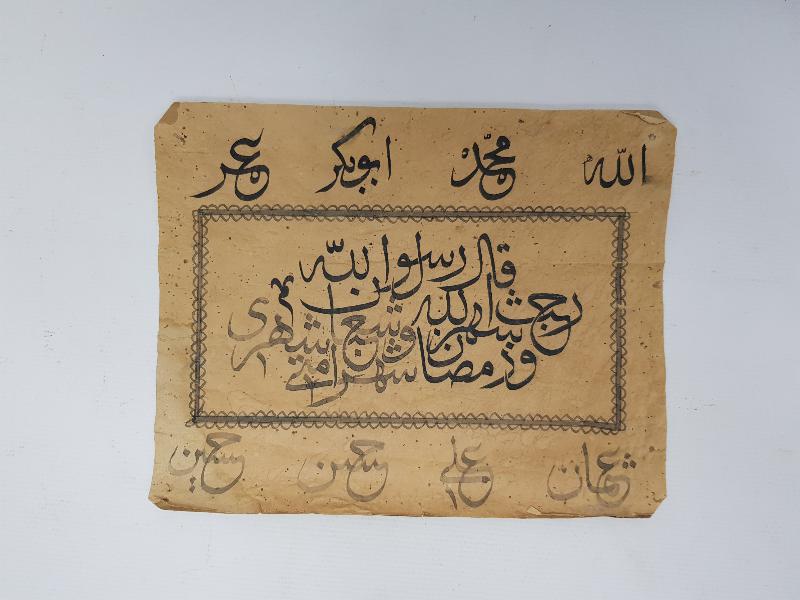 الله محمد ابوبكر عمر
قال رسول الله
رجب شهر الله وشعبان شهرى
ورمضان شهر امتى
عثمان على حسن حسين